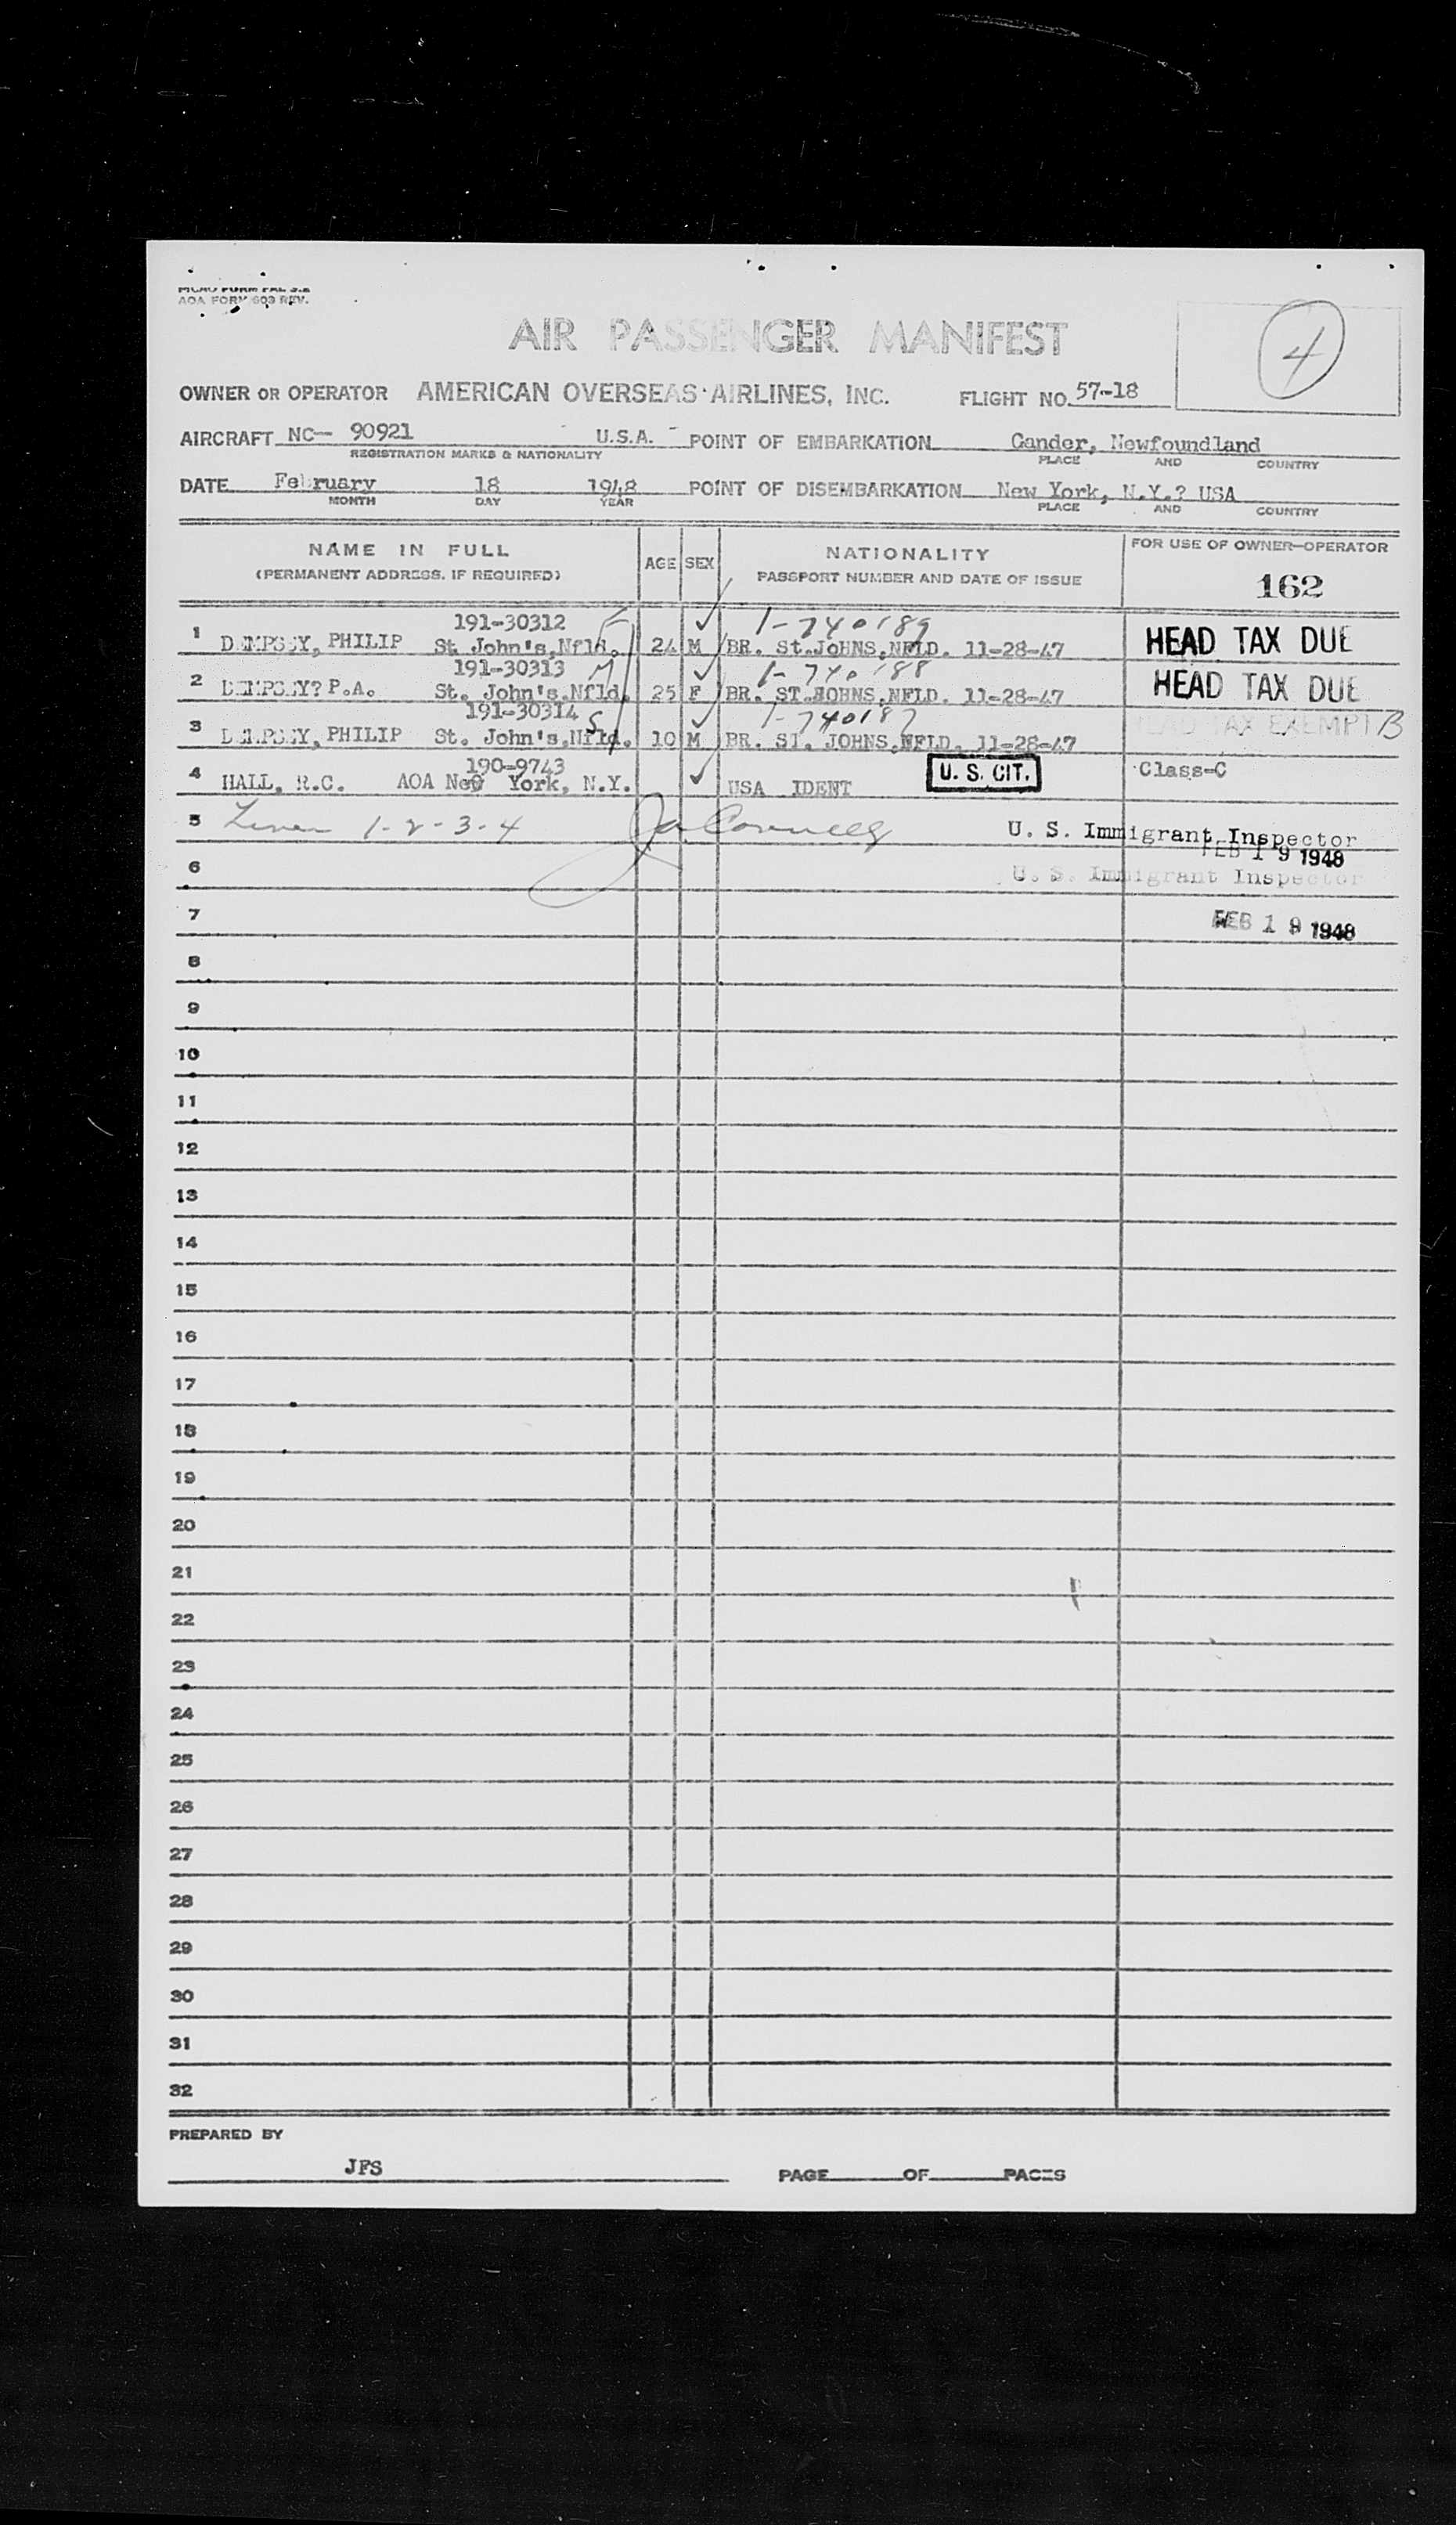 AOA FORM 603 REV.
AIR PASSENGER MANIFEST
4
OWNER OR OPERATOR AMERICAN OVERSEAS AIRLINES, INC. FLIGHT NO. 57-18
AIRCRAFT NC- 90921 U.S.A. POINT OF EMBARKATION Gander, Newfoundland
REGISTRATION MARKS & NATIONALITY PLACE AND COUNTRY
DATE February 18 1948 POINT OF DISEMBARKATION New York, N.Y.? USA
MONTH DAY YEAR PLACE AND COUNTRY
NAME IN FULL AGE SEX NATIONALITY FOR USE OF OWNER-OPERATOR
(PERMANENT ADDRESS, IF REQUIRED) PASSPORT NUMBER AND DATE OF ISSUE 162
191-30312 F ✓ 1-740189
1 DEMPSEY, PHILIP St. John's,Nfld. 24 M BR. St.JOHNS,NFLD. 11-28-47 HEAD TAX DUE
191-30313 M ✓ 1-740188
2 DEMPSEY? P.A. St. John's,Nfld. 25 F BR. ST.JOHNS,NFLD. 11-28-47 HEAD TAX DUE
191-30314 S ✓ 1-740187
3 DEMPSEY, PHILIP St. John's,Nfld. 10 M BR. ST. JOHNS,NFLD. 11-28-47 HEAD TAX EXEMPT B
190-9743 ✓
4 HALL, R.C. AOA New York, N.Y. USA IDENT U. S. CIT. Class-C
5 1-2-3-4 U. S. Immigrant Inspector
FEB 19 1948
6 U. S. Immigrant Inspector
7 FEB 19 1948
8
9
10
11
12
13
14
15
16
17
18
19
20
21
22
23
24
25
26
27
28
29
30
31
32
PREPARED BY
JFS PAGE OF PAGES